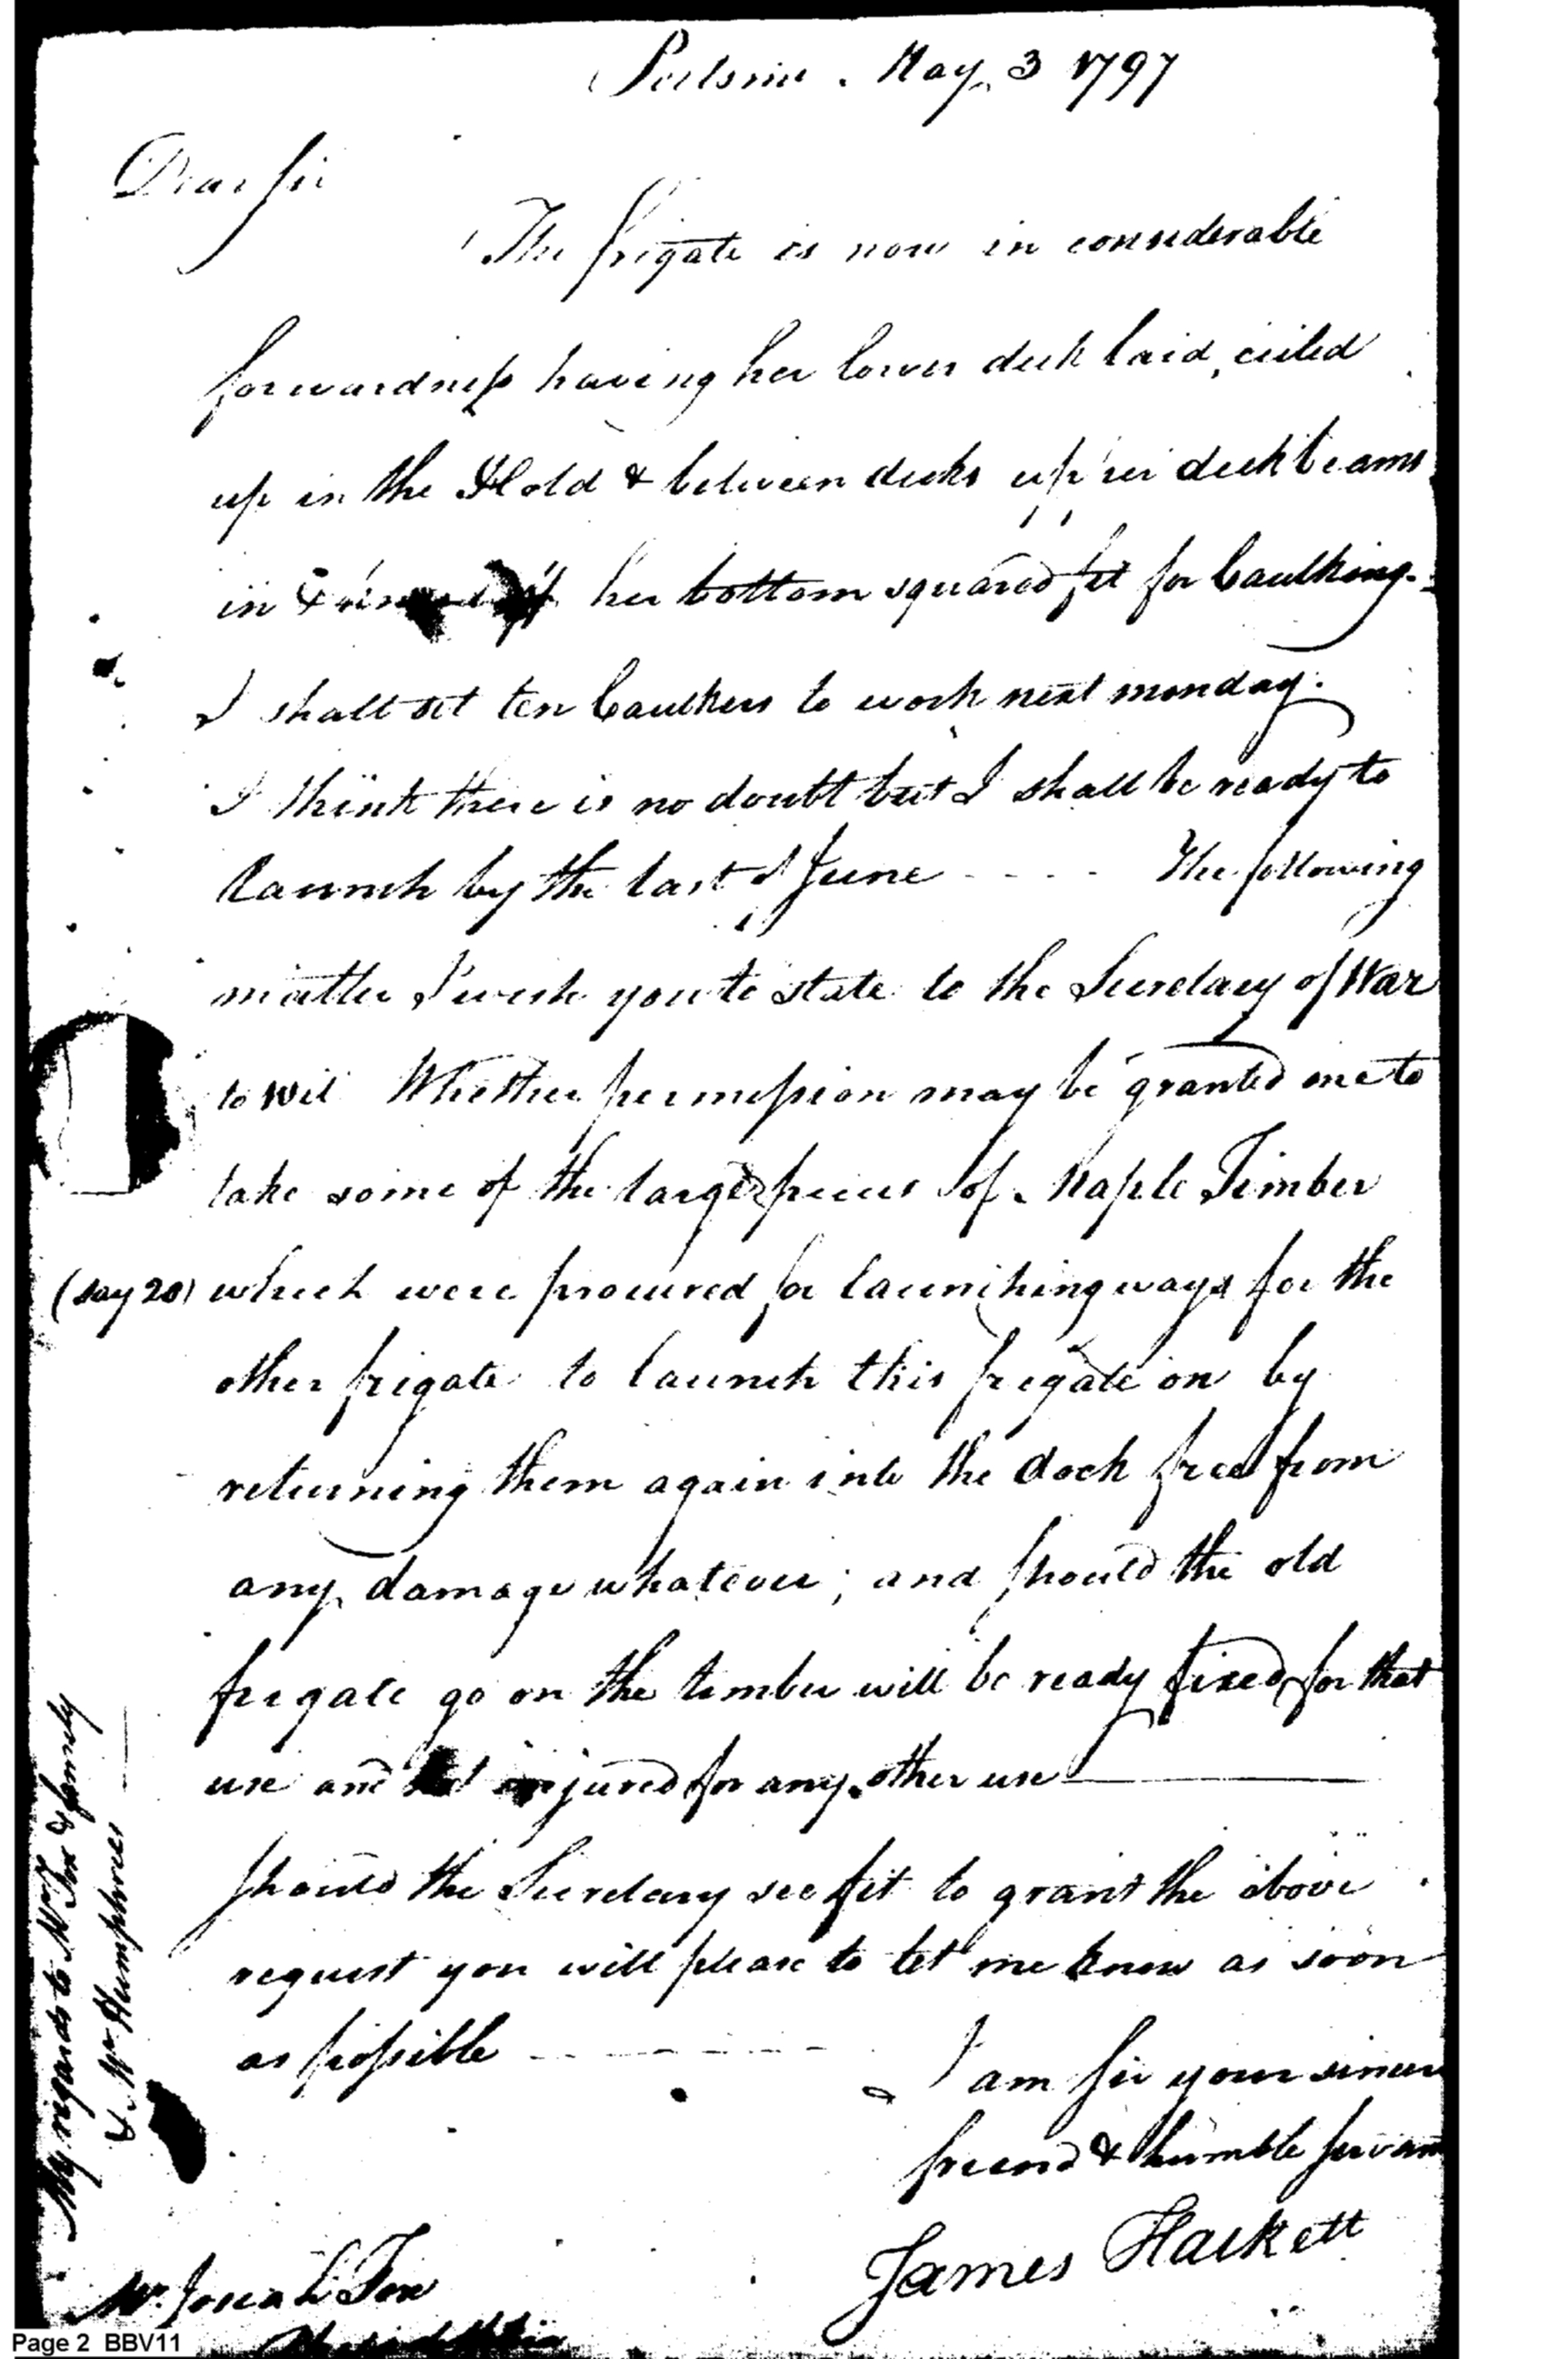 Portsmº. May 3 1797
Dear Sir
The frigate is now in considerable
forwardness having her lower deck laid, ceiled
up in the Hold & between decks upper deck beams
in & her bottom squared fit for Caulking.
I shall set ten Caulkers to work next monday.
I think there is no doubt but I shall be ready to
launch by the last of June - - - - The following
matter I wish you to state to the Secretary of War
to wit Whether permission may be granted me to
take some of the larger pieces of Maple Timber
(say 20) which were procured for launching ways for the
other frigate to launch this frigate on by
returning them again into the dock free from
any damage whatever; and should the old
frigate go on the timber will be ready fixed for that
use and injured for any other use
should the Secretary see fit to grant the above
request you will please to let me know as soon
as possible - - - - - - -
I am sir your sincere
friend & humble servant
James Hackett
Mr. Josiah Fox
My regards to Mrs Fox & family
& Mr Humphries
Page 2 BBV11